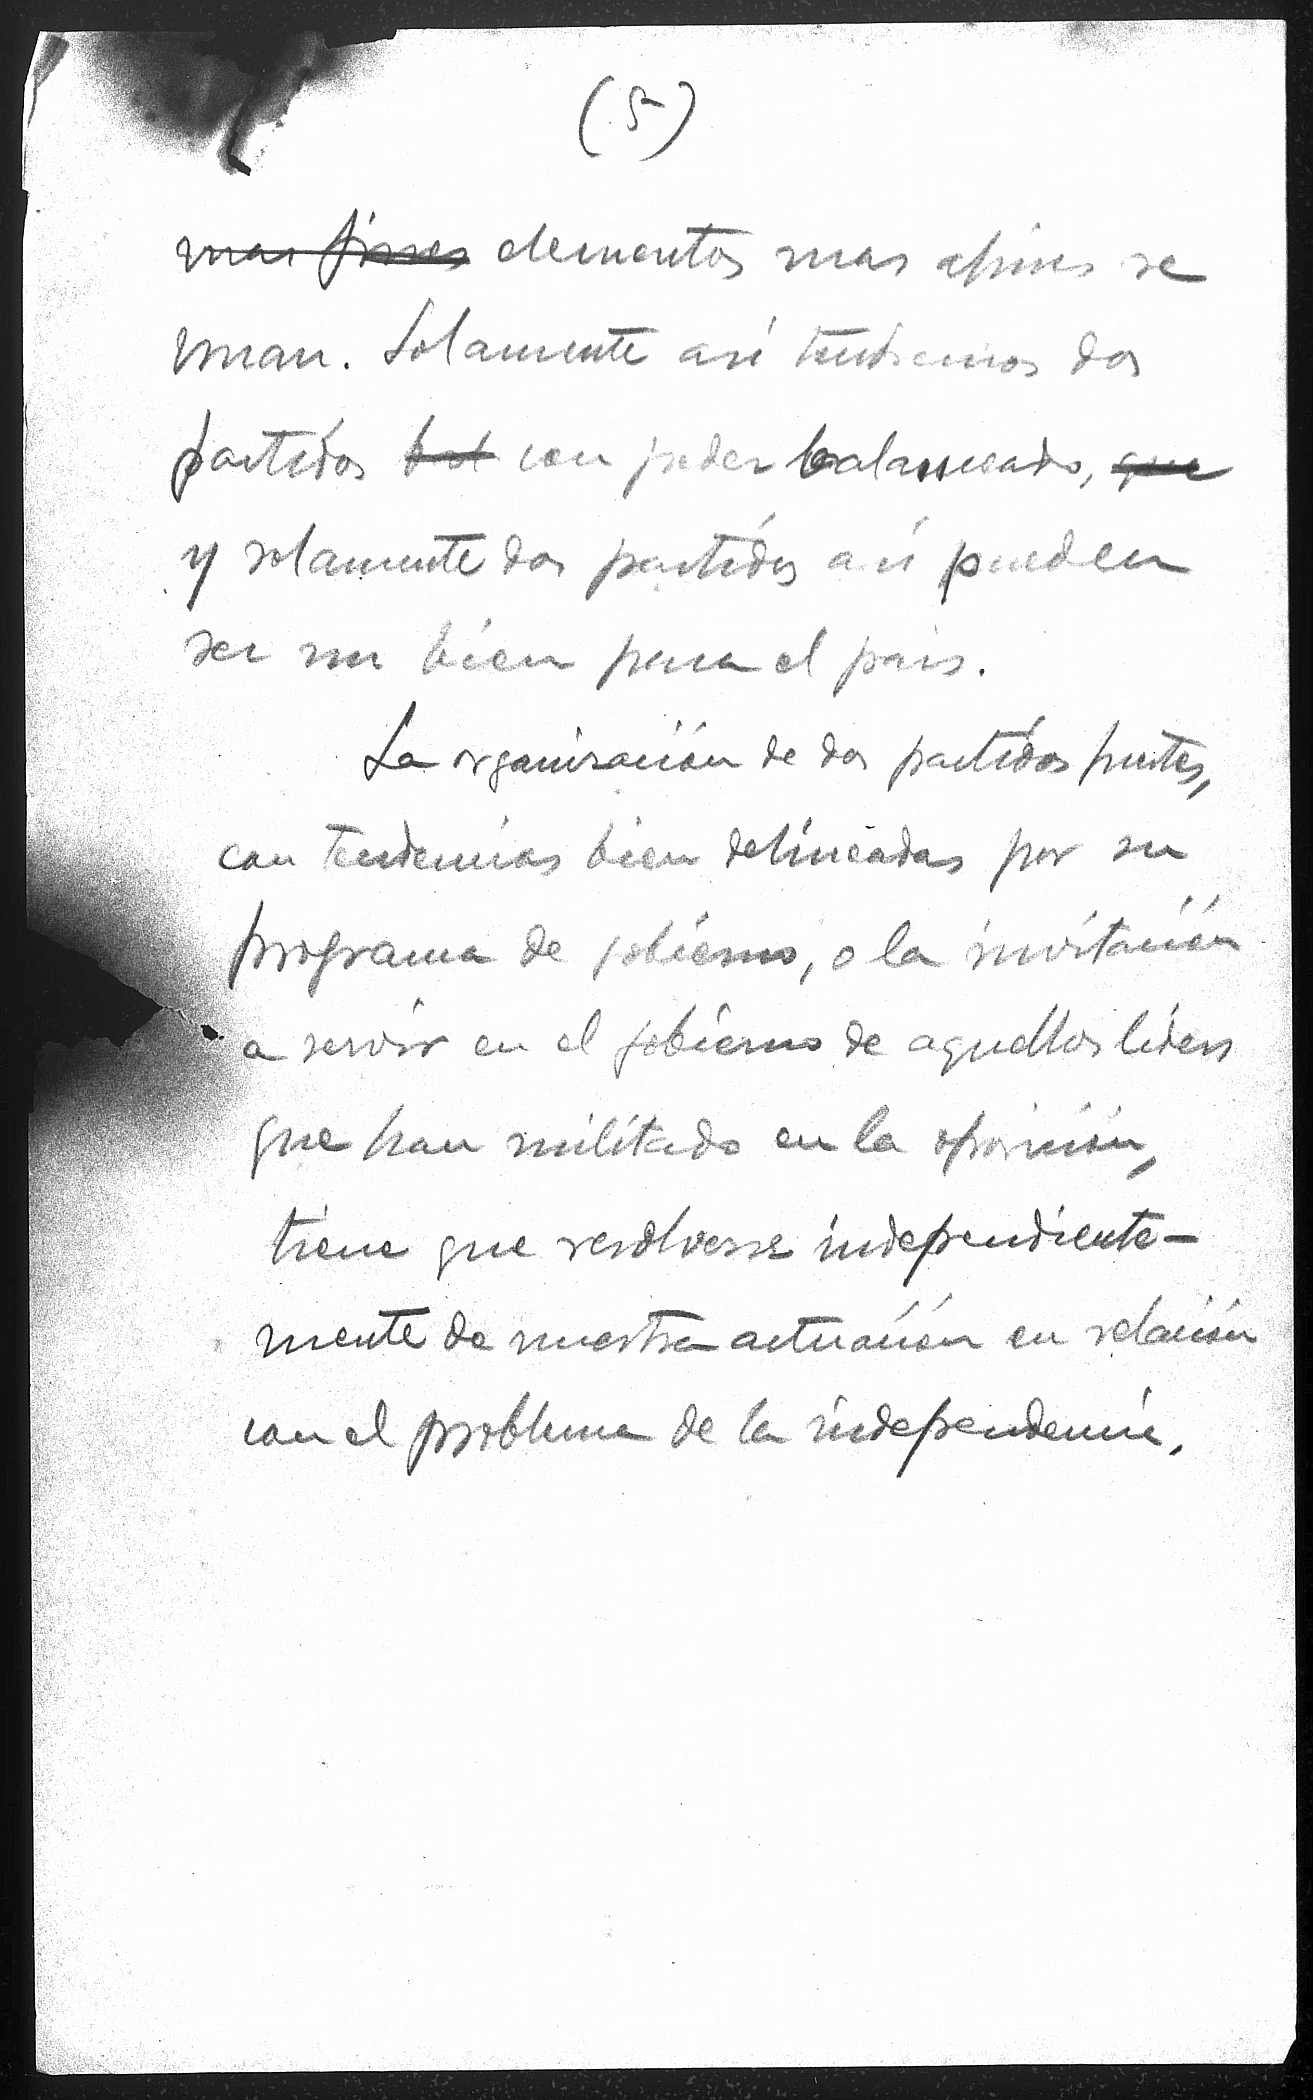 (5)
mas fines elementos mas afines se
unan. Solamente asi tendremos dos
partidos bal con poder balanceado, que
y solamente dos partidos asi pueden
ser un bien para el pais.
La organización de dos partidos fuertes,
con tendencias bien delineadas por su
programa de gobierno, o la invitación
a servir en el gobierno de aquellos liders
que han militado en la oposición,
tiene que resolverse independiente-
mente de nuestra actuación en relación
con el problema de la independencia.